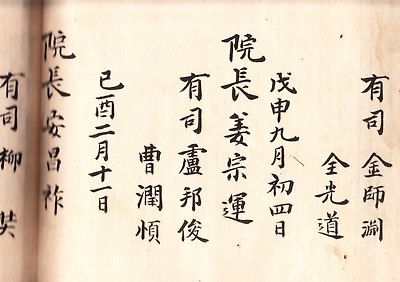 有司 金師淵
全光道
戊申九月初四日
院長 姜宗運
有司 盧邦俊
曹潤慎
己酉二月十一日
院長 安昌祚
有司 柳